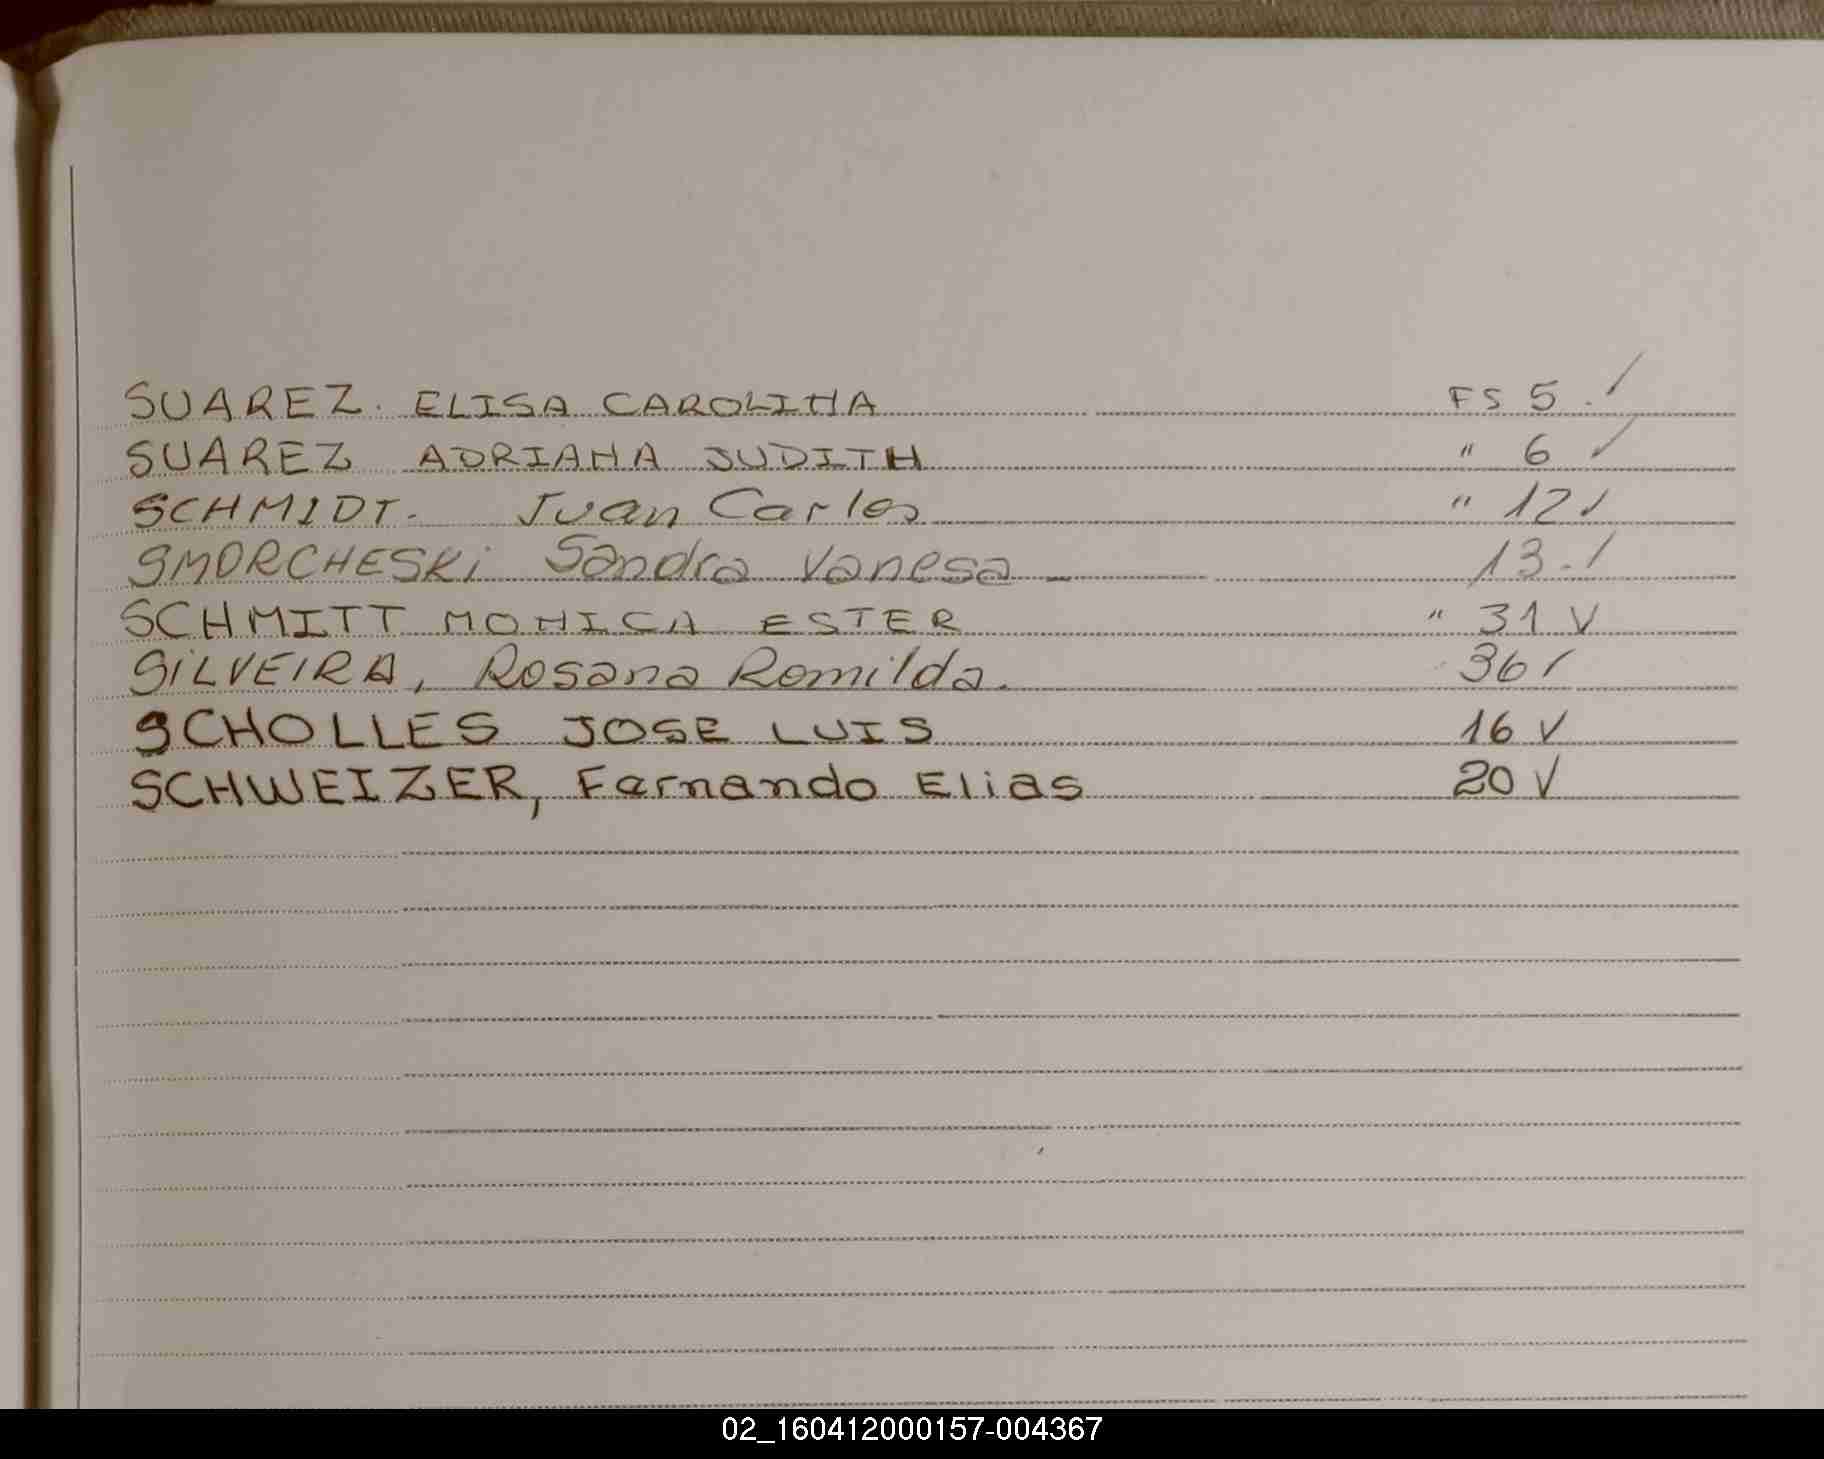 SUAREZ. ELISA CAROLINA FS 5. ✓
SUAREZ ADRIANA JUDITH " 6 ✓
SCHMIDT. Juan Carlos " 12 ✓
SMORCHESKi Sandra Vanesa — 13. ✓
SCHMITT MONICA ESTER " 31 V
SiLVEIRA, Rosana Romilda. 36 ✓
SCHOLLES JOSE LUIS 16 V
SCHWEIZER, Fernando Elias 20 V
02_160412000157-004367